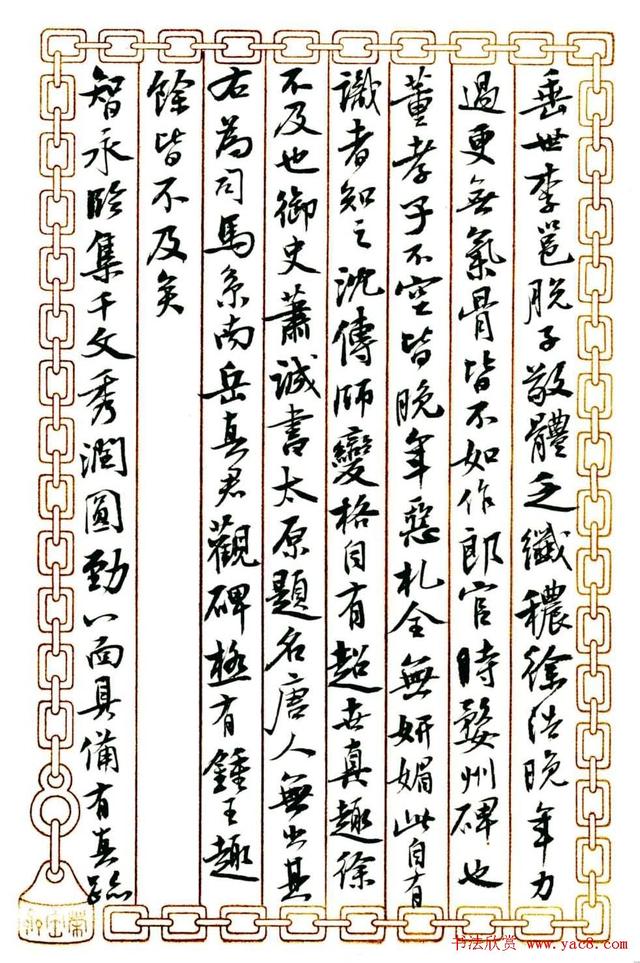 垂世李邕脱子敬體乏纖穠徐浩晚年力
過更無氣骨皆不如作郎官時婺州碑也
董孝子不空皆晚年惡札全無妍媚此自有
識者知之沈傳師變格自有超世真趣徐
不及也御史蕭誠書太原題名唐人無出其
右為司馬系南岳真君觀碑極有鍾王趣
餘皆不及矣
智永臨集千文秀潤圓勁八面具備有真跡
书法欣赏 www.yac8.com